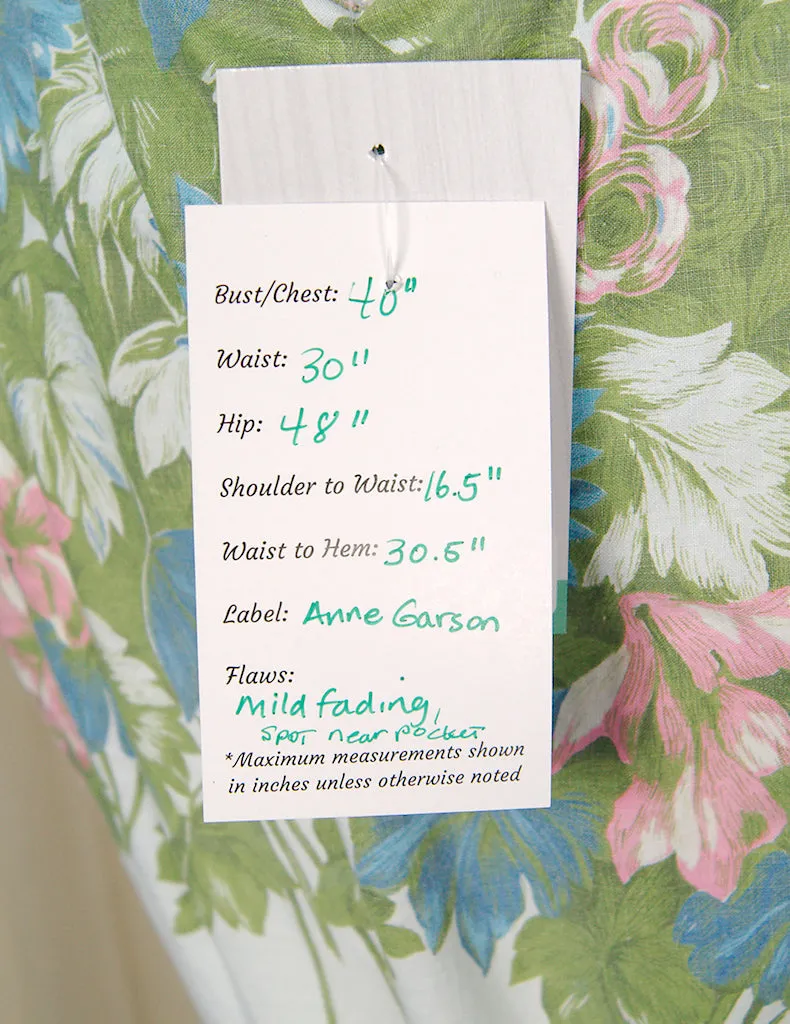 Bust/Chest: 40"
Waist: 30"
Hip: 48"
Shoulder to Waist: 16.5"
Waist to Hem: 30.5"
Label: Anne Garson
Flaws:
mild fading,
spot near pocket
*Maximum measurements shown
in inches unless otherwise noted